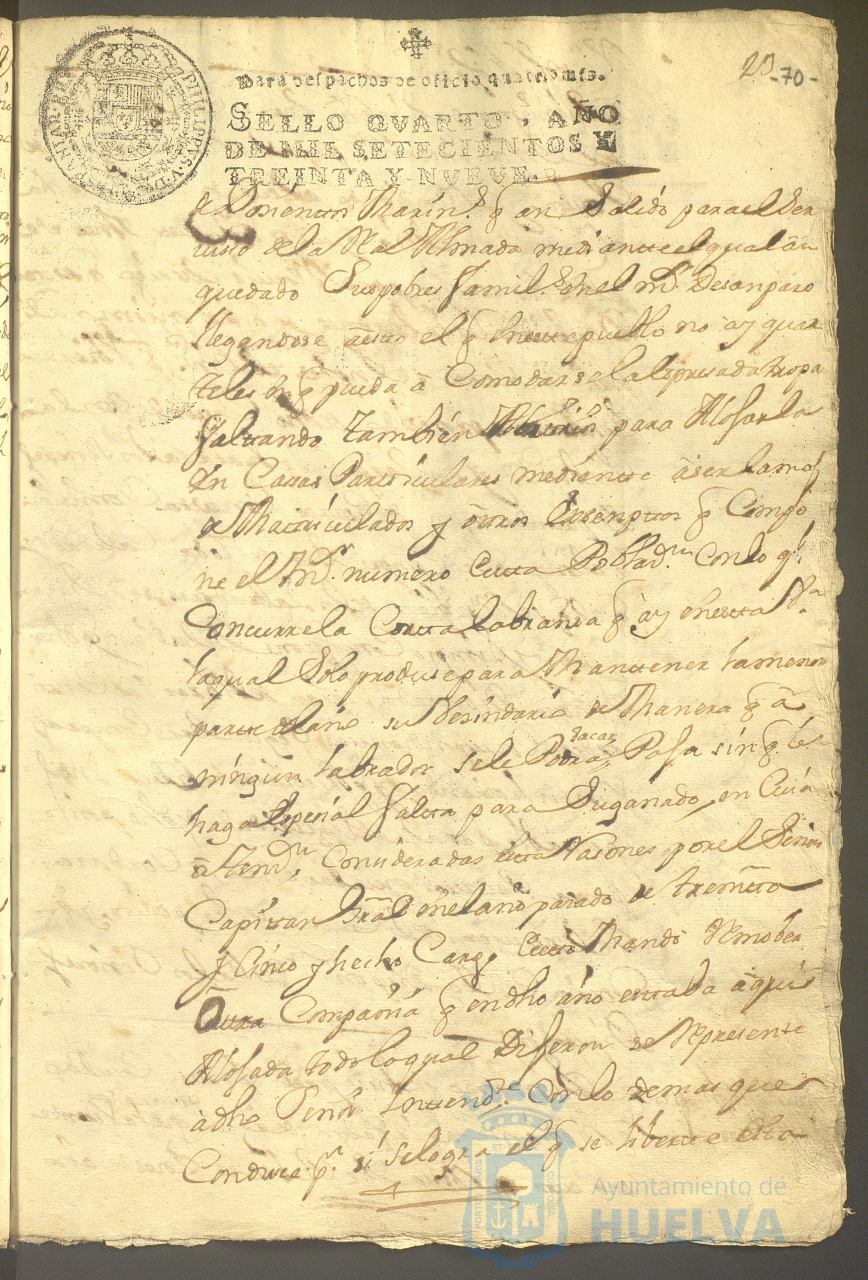 20 -70-
PHILIPPVS V D
Para despachos de oficio quatro mrs.
SELLO QVARTO, AÑO
DE MIL SETECIENTOS Y
TREINTA Y NUEVE.
Marin.s q an Salido para el Ser
visio de la Rl Armada mediante el qual an
quedado Sus pobres Famil.s en el mr. Desanparo
llegandose a esto el q en este pueblo no ay quar
teles en q pueda a Comodarse la espresada tropa
faltando tambien para Alojarla
en Casas Particulares mediante a ser los mas
Matriculados y otros Esenptos q Conpo
ne el numero esta Poblad.n Con lo q.l
Concurre la Corta labransa q ay en esta V.a
la qual Solo produse para Mantener la menor
parte del año su besindario de Manera q a
ningun labrador se le Podra sacar Paja sin q le
haga Espesial falta para Su ganado, en Cuia
atend.n Consideradas estas Rasones por el Senor
Capitan Gral en el año pasado de treinta
y Cinco y hecho Cargo Mando Remober
Otra Compañia q en dho año estaba aqui
Alojada todo lo qual Dijeron se Represente
a dho Senor Intend.te Con lo demas que
Conduce p.a si se logra el q se liberte esta
Ayuntamiento de
HUELVA